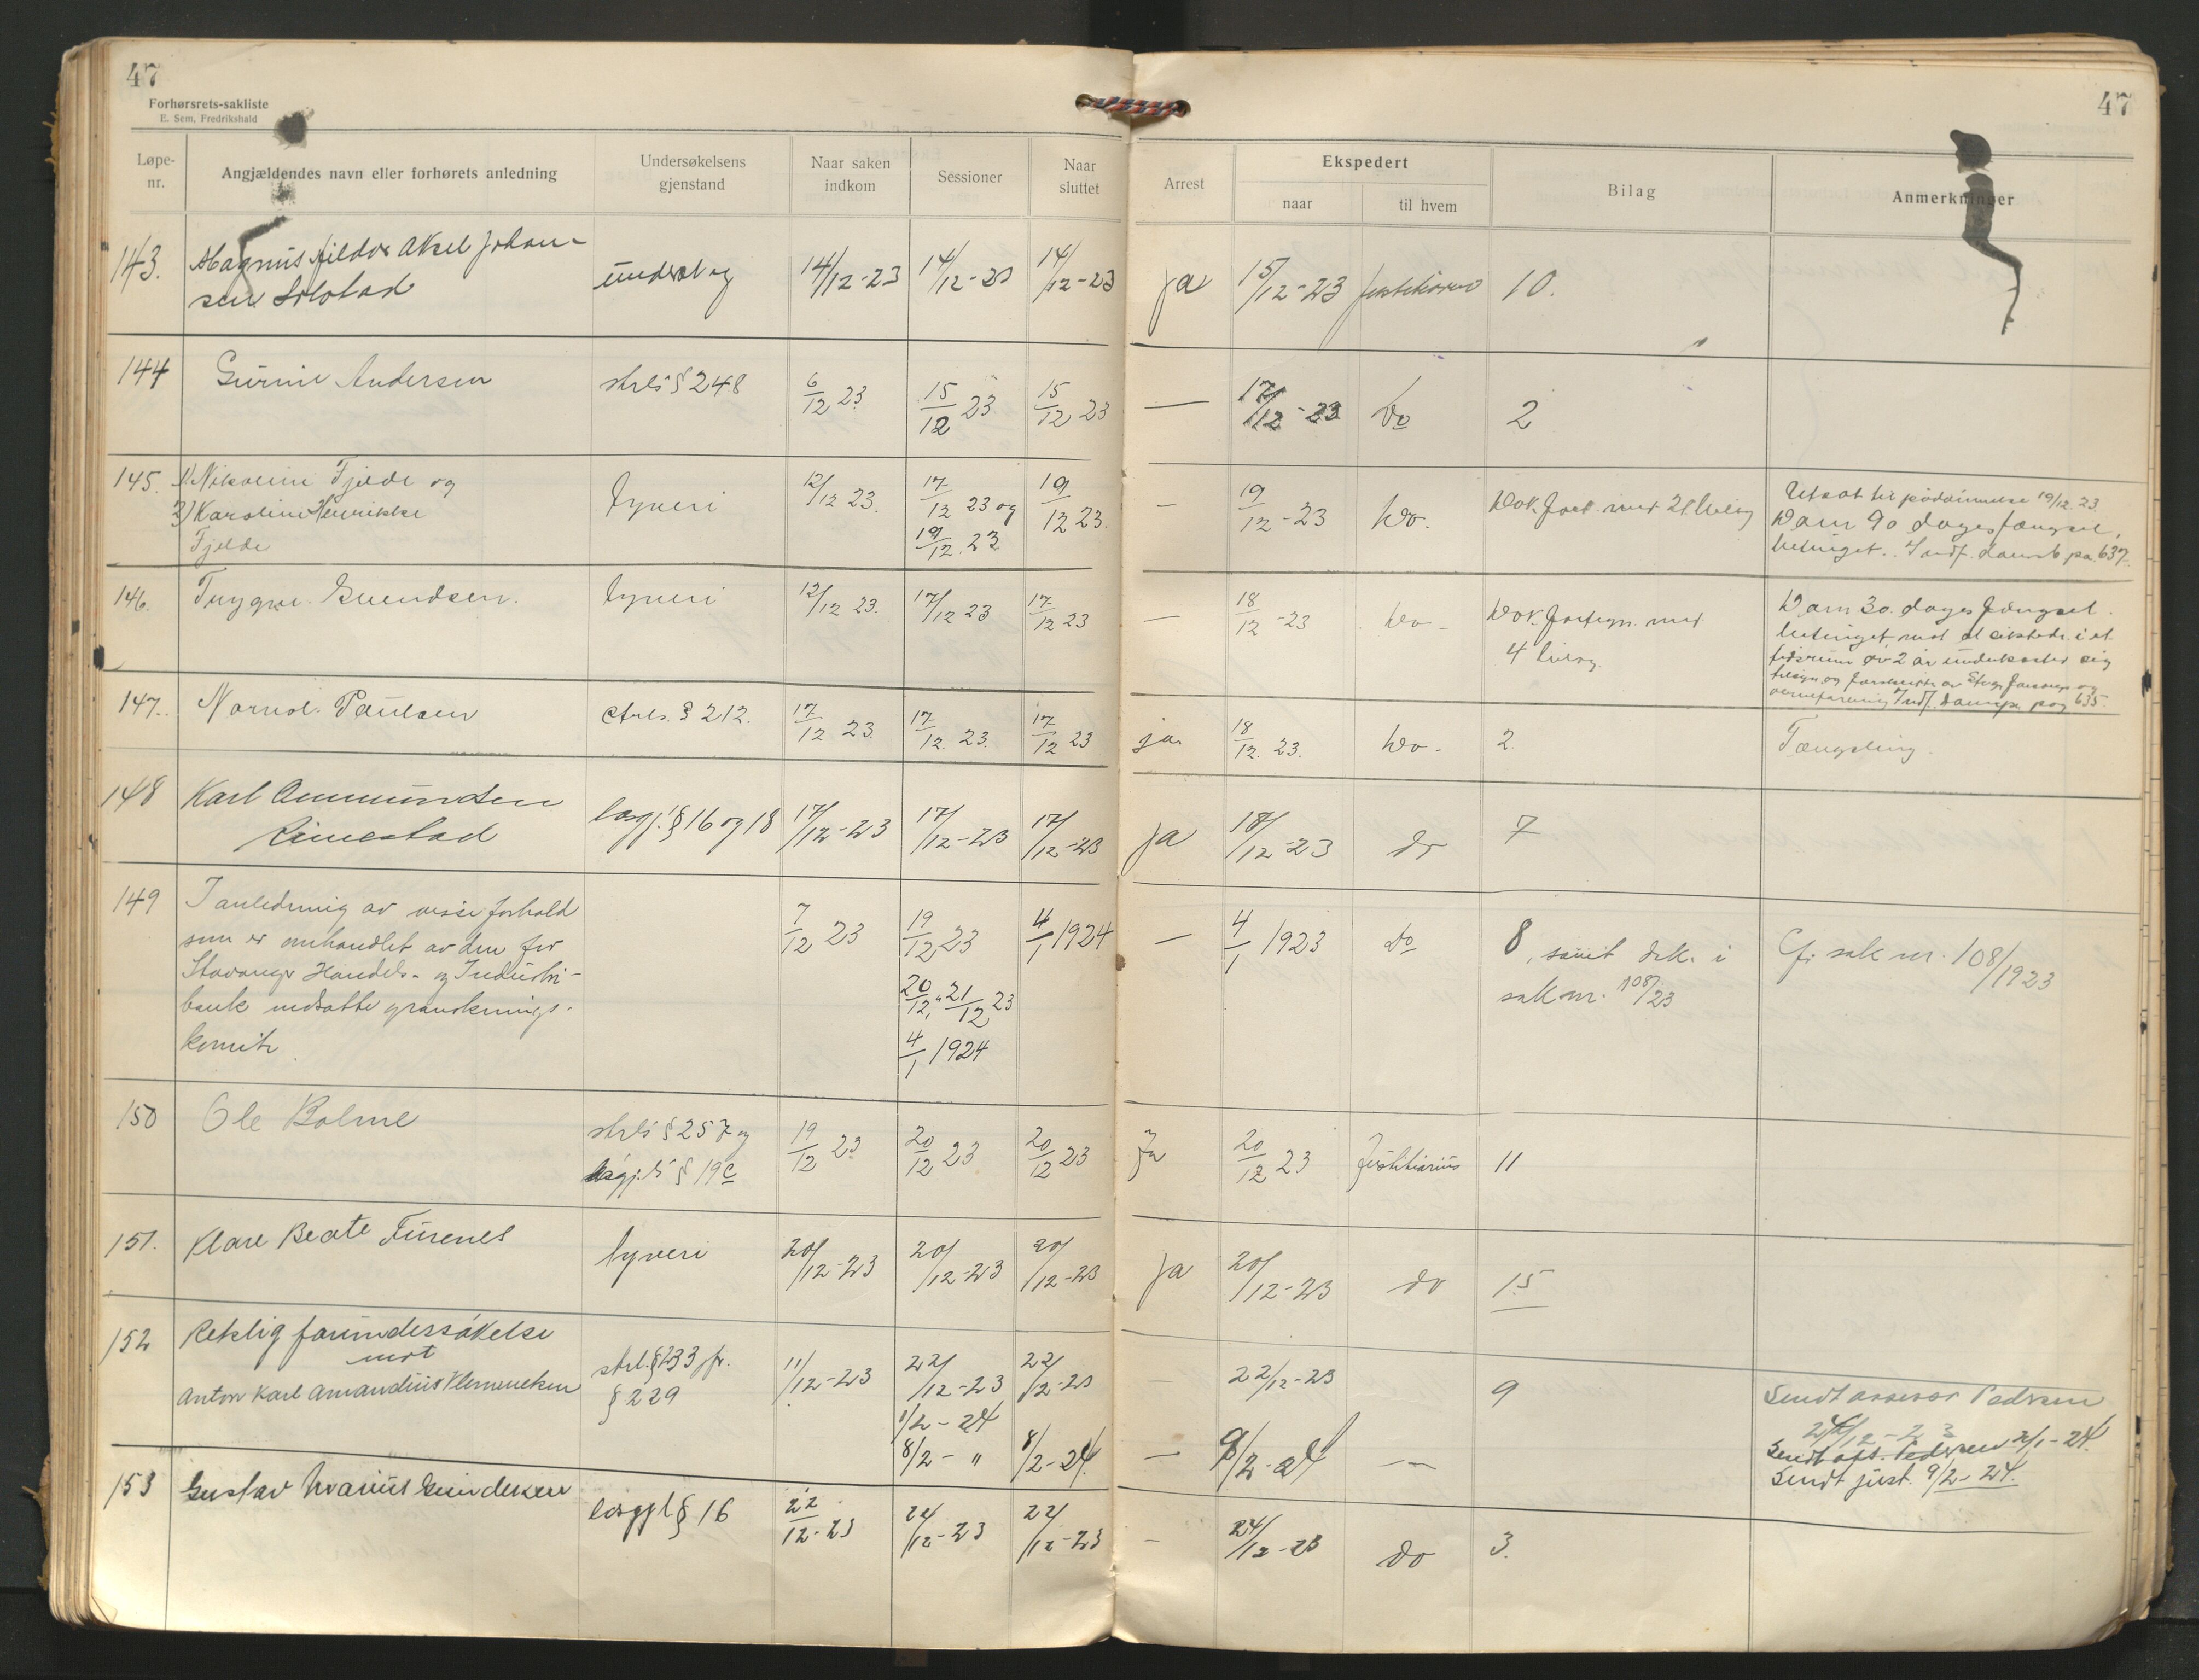 47
47
Forhørsrets-sakliste
E. Sem, Fredrikshald
Løpe-nr.
Angjældendes navn eller forhørets anledning
Undersøkelsens gjenstand
Naar saken indkom
Sessioner
Naar sluttet
Arrest
Ekspedert
naar
til hvem
Bilag
Anmerkninger
143. Magnus Aksel Johan-
sen underslag 14/12-23 14/12-23 14/12-23 ja 15/12-23 Justitiarius 10.
144 Gunnie Andersen strls § 248 6/12 23 15/12 23 15/12 23 — 17/12-23 Do 2
145. 1) Nikoline Fjelde og
2) Karoline Henrikke
Fjelde
tyveri 12/12 23. 17/12 23 og
19/12 23
19/12 23. — 19/12-23 Do. Dok. fort. med 21 bilag
Utsat til pådømmelse 19/12 23.
Dom 90 dages fængsel,
betinget. Indf. domsb pa. 637.
146. Trygve Svendsen. tyveri 12/12 23. 17/12 23 17/12 23 — 18/12-23 Do- Dok. fortegn. med
4 bilag.
Dom 30 dages fængsel.
betinget mot at siktede i et
tidsrum av 2 år underkaster sig
tilsyn og av Stvgr. og
Indf. pag 635.
147. Paulsen strls. § 212. 17/12 23. 17/12. 23. 17/12 23 ja 18/12. 23. Do- 2. Fængsling.
148 Karl Ommundsen
Rimestad
løsgj. § 16 og 18 17/12-23 17/12-23 17/12-23 ja 18/12-23 do 7
149 I anledning av visse forhold
som er omhandlet av den for
Stavanger Handels- og Industri-
bank nedsatte gransknings-
komite.
7/12 23 19/12 23
20/12, 21/12 23
4/1 1924
4/1 1924 — 4/1 1923 do 8, samt dok. i
sak nr. 108/23
Cfr sak nr. 108/1923
150 Ole Bolme strls § 257 og
løsgj.l. § 19 c
19/12 23 20/12 23 20/12 23 Ja 20/12 23 Justitiarius 11
151. Klare Beate Furenes tyveri 20/12-23 20/12-23 20/12-23 ja 20/12-23 do 15
152 Retslig forundersøkelse
mot
Anton Karl Amandius Klemmetsen
strl. § 233 jfr.
§ 229
11/12-23 22/12-23
1/2-24
8/2- "
22/12-23
8/2-24.
— 22/12-23 9
— 9/2-24 —
Sendt assessor Pedersen
24/12-23
Sendt Pedersen 2/1-24.
Sendt just. 9/2-24.
153 Gustav Gundersen løsgjl § 16 22/12-23 22/12-23 22/12-23 — 24/12-23 do 3.